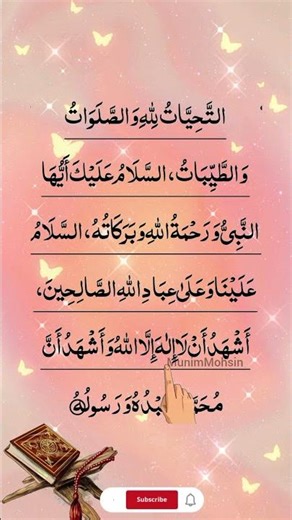 التَّحِيَّاتُ لِلّٰهِ وَالصَّلَوَاتُ
وَالطَّيِّبَاتُ، السَّلَامُ عَلَيْكَ أَيُّهَا
النَّبِيُّ وَرَحْمَةُ اللهِ وَبَرَكَاتُهُ، السَّلَامُ
عَلَيْنَا وَعَلَىٰ عِبَادِ اللهِ الصَّالِحِينَ،
أَشْهَدُ أَنْ لَا إِلٰهَ إِلَّا اللهُ وَأَشْهَدُ أَنَّ
MunimMohsin
وَرَسُولُهُ
Subscribe